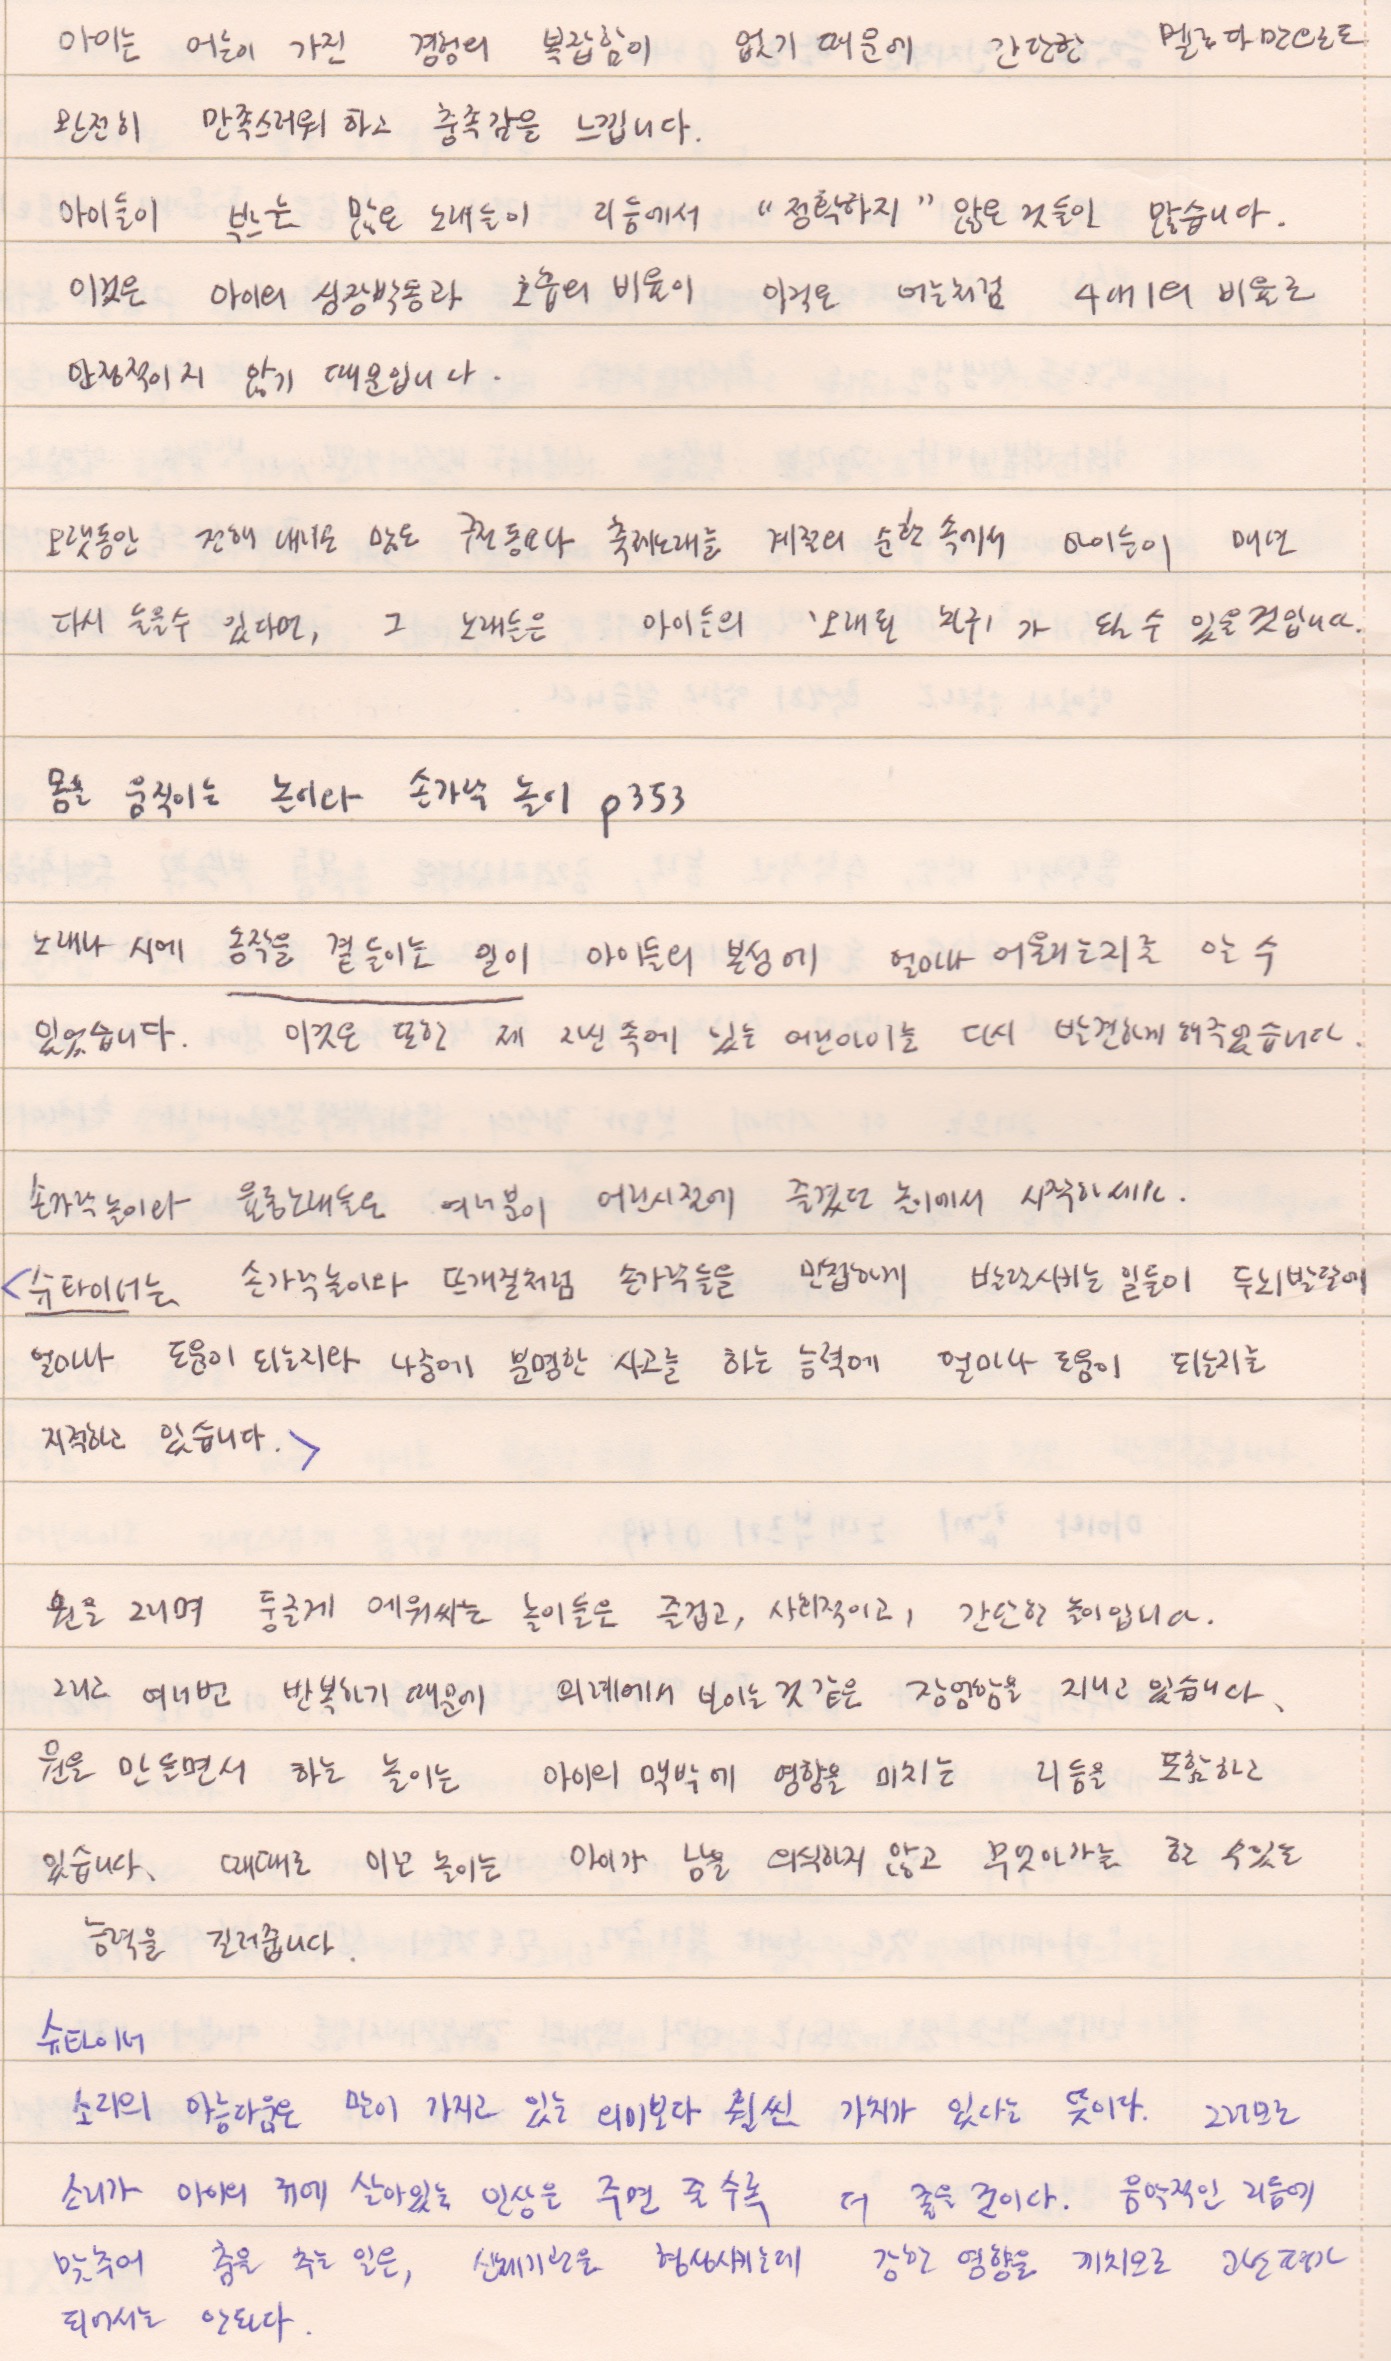 아이는 어른이 가진 경험의 복잡함이 없기 때문에 간단한 멜로디만으로도
완전히 만족스러워 하고 충족감을 느낍니다.
아이들이 부르는 많은 노래들이 리듬에서 "정확하지" 않은 것들이 많습니다.
이것은 아이의 심장박동과 호흡의 비율이 아직은 어른처럼 4대1의 비율로
안정적이지 않기 때문입니다.
오랫동안 전해 내려온 많은 구전동요나 축제노래를 계절의 순환 속에서 아이들이 매년
다시 들을수 있다면, 그 노래들은 아이들의 '오래된 친구'가 될 수 있을것입니다.
몸을 움직이는 놀이와 손가락 놀이 p353
노래나 시에 동작을 곁들이는 일이 아이들의 본성에 얼마나 어울리는지를 알 수
있었습니다. 이것은 또한 제 자신 속에 있는 어린아이를 다시 발견하게 해주었습니다.
손가락놀이와 율동노래들은 여러분이 어린시절에 즐겼던 놀이에서 시작하세요.
<슈타이너는 손가락놀이와 뜨개질처럼 손가락들을 민첩하게 발달시키는 일들이 두뇌발달에
얼마나 도움이 되는지와 나중에 분명한 사고를 하는 능력에 얼마나 도움이 되는지를
지적하고 있습니다.>
원을 그리며 둥글게 에워싸는 놀이들은 즐겁고, 사회적이고, 간단한 놀이입니다.
그리고 여러번 반복하기 때문에 의례에서 보이는것 같은 장엄함을 지니고 있습니다.
원을 만들면서 하는 놀이는 아이의 맥박에 영향을 미치는 리듬을 포함하고
있습니다. 때때로 이런 놀이는 아이가 남을 의식하지 않고 무엇인가를 할 수있는
능력을 길러줍니다.
슈타이너
소리의 아름다움은 말이 가지고 있는 의미보다 훨씬 가치가 있다는 뜻이다. 그러므로
소리가 아이의 귀에 살아있는 인상을 주면 줄 수록 더 좋을 것이다. 음악적인 리듬에
맞추어 춤을 추는 일은, 신체기관을 형성시키는데 강한 영향을 끼치므로 과소평가
되어서는 안된다.